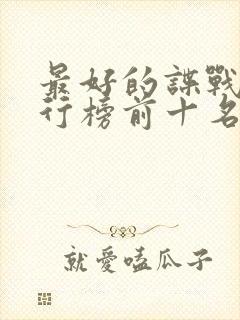 最好的諜戰
行榜前十名
就愛嗑瓜子